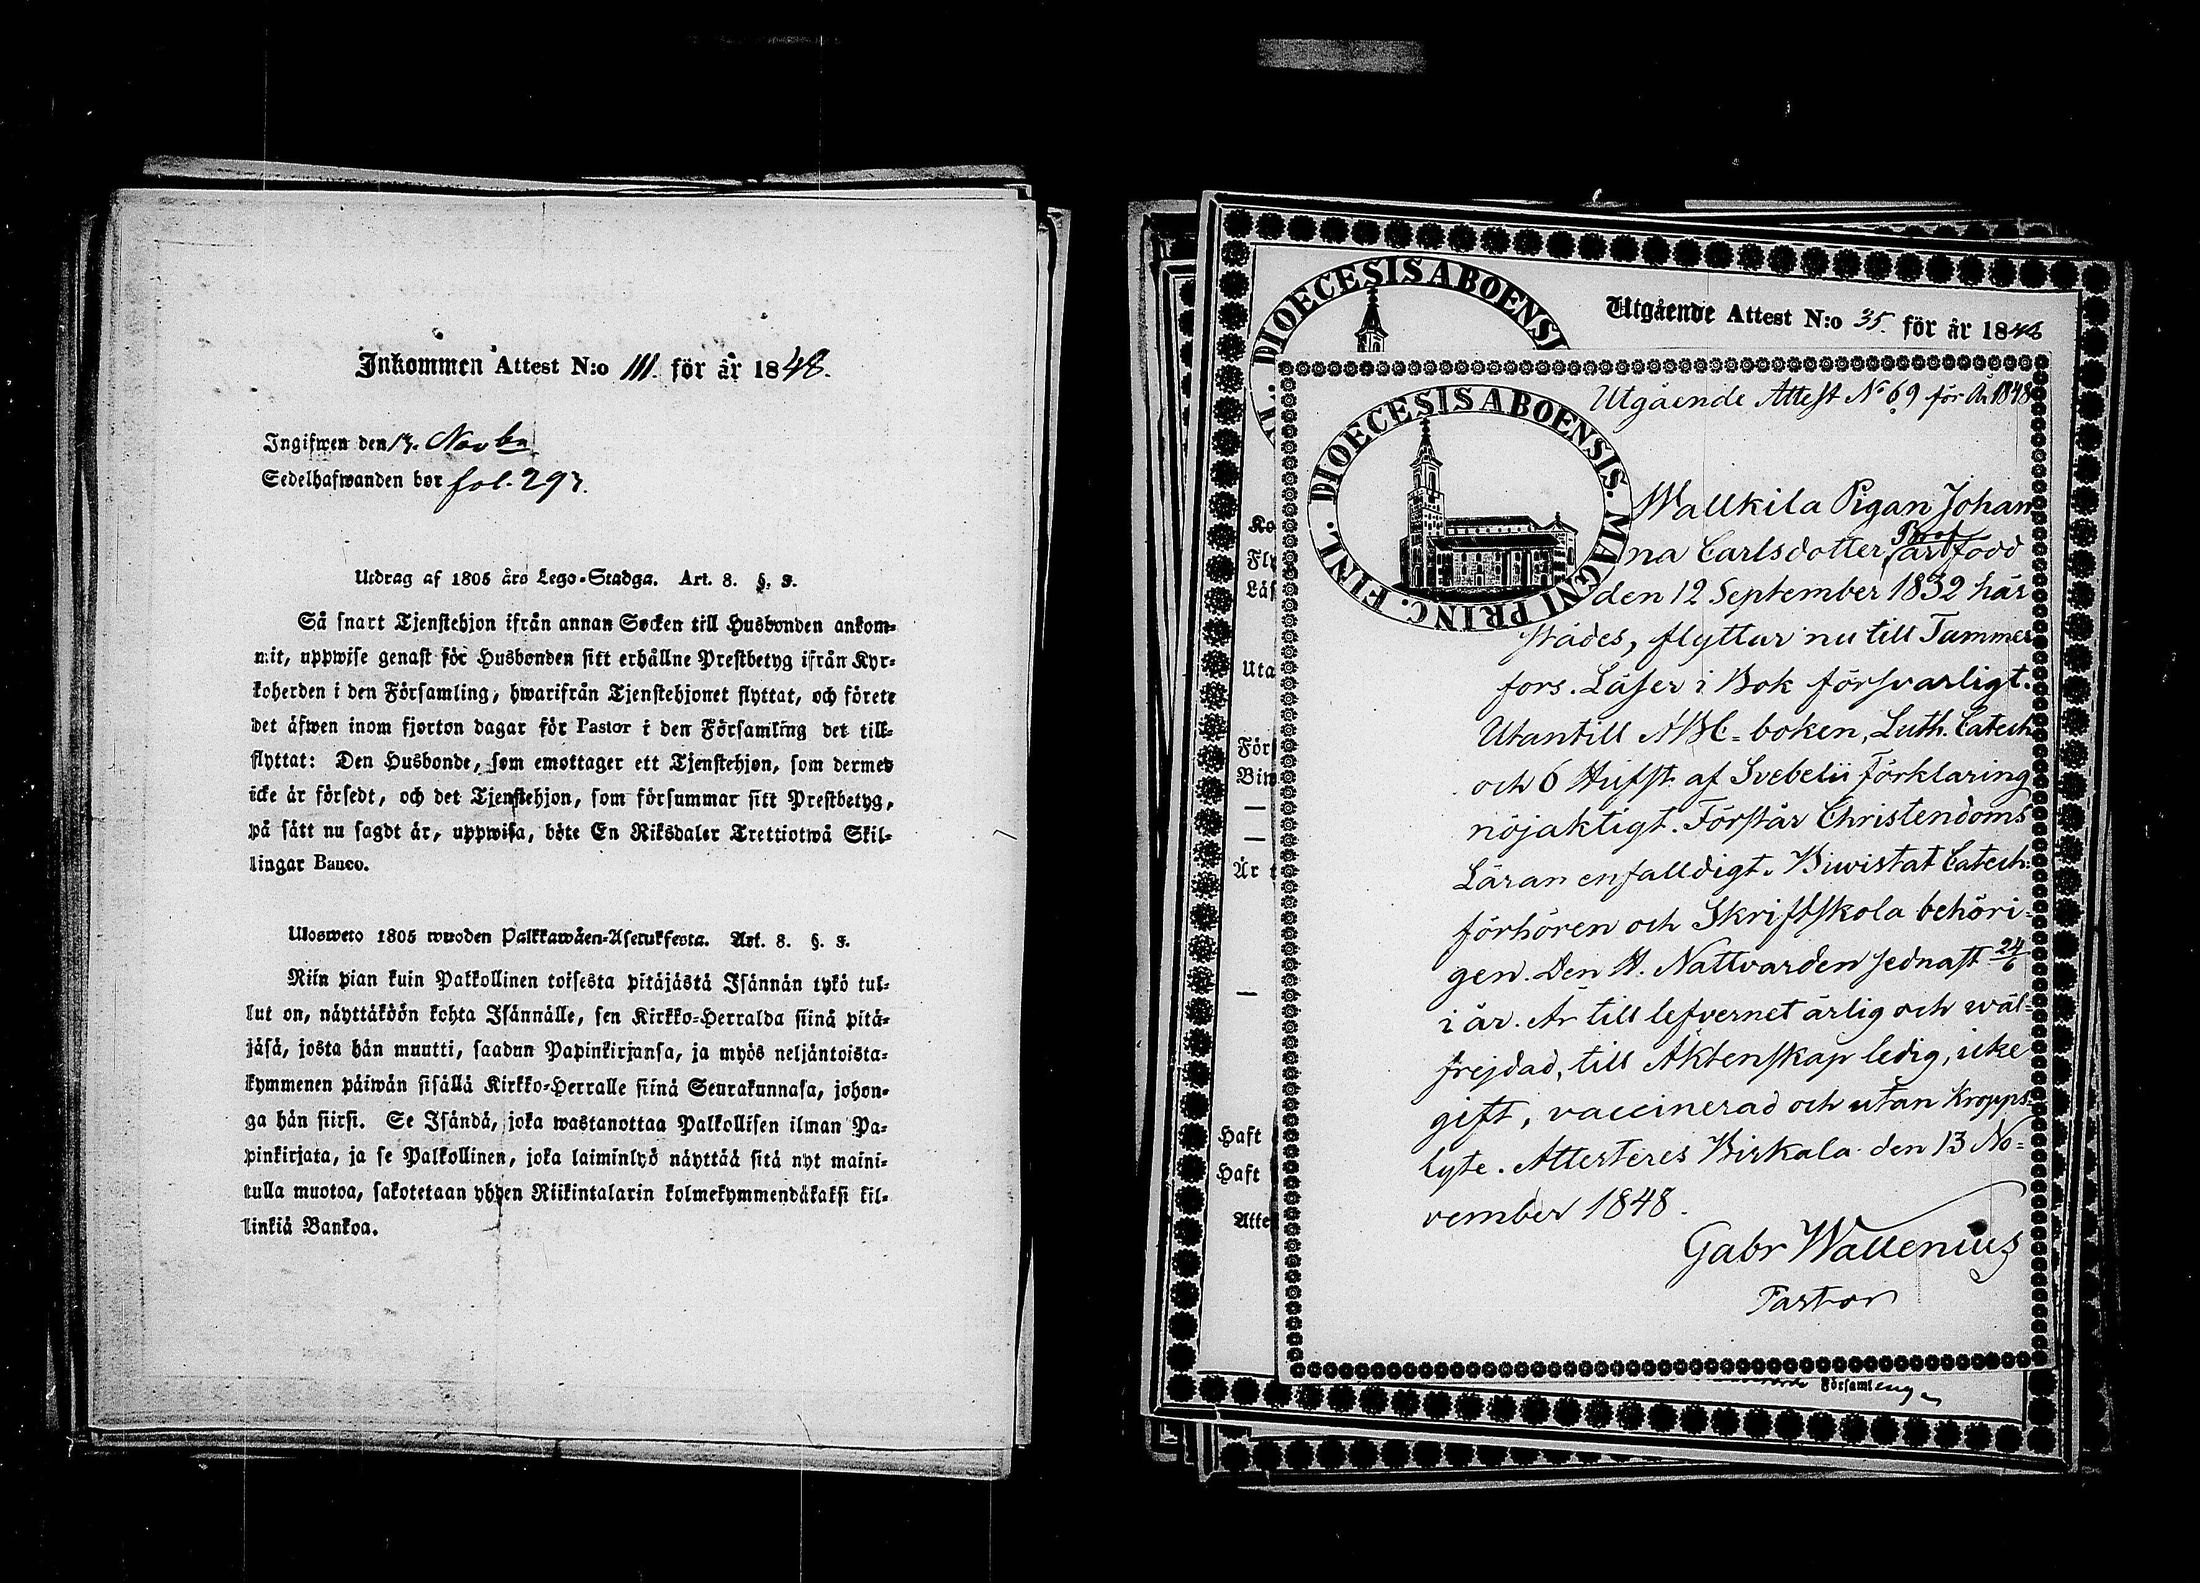 Inkommen Attest N:o 111. för år 1848.
Ingifwen den 17. Novbr
Sedelhafwanden bor fol. 297.
Utdrag af 1805 års Lego-Stadga. Art. 8. §. 3.
Så snart Tjenstehjon ifrån annan Socken till Husbonden ankom-
mit, uppwise genast för Husbonden sitt erhållne Prestbetyg ifrån Kyr-
koherden i den Församling, hwarifrån Tjenstehjonet flyttat, och förete
det äfwen inom fjorton dagar för Pastor i den Församling det till-
flyttat: Den Husbonde, som emottager ett Tjenstehjon, som dermed
icke är försedt, och det Tjenstehjon, som försummar sitt Prestbetyg,
på sätt nu sagdt är, uppwisa, böte En Riksdaler Trettiotwå Skil-
lingar Banco.
Ulosweto 1805 wuoden Palkkawäen-Asetuksesta. Art. 8. §. 3.
Niin pian kuin Palkollinen toisesta pitäjästä Isännän tykö tul-
lut on, näyttäköön kohta Isännälle, sen Kirkko-Herralda siinä pitä-
jäsä, josta hän muutti, saadun Papinkirjansa, ja myös neljäntoista-
kymmenen päiwän sisällä Kirkko-Herralle siinä Seurakunnasa, johon-
ga hän siirsi. Se Isändä, joka wastanottaa Palkollisen ilman Pa-
pinkirjata, ja se Palkollinen, joka laiminlyö näyttää sitä nyt maini-
tulla muotoa, sakotetaan yhden Riikintalarin kolmekymmendäkaksi kil-
linkiä Bankoa.
DIOECESIS ABOENSI
Utgående Attest N:o 35. för år 1848
Utgående Attest No 69 för År 1848
DIOECESIS ABOENSIS. MAGNI PRINC. FINL.
Wallkila Pigan Johan
na Carlsdotter, född
den 12 September 1832 här
städes, flyttar nu till Tammer
fors. Läser i Bok försvarligt.
Utantill ABC-boken, Luth. Catech
och 6 Hufst. af Svebelii Förklaring
nöjaktigt. Förstår Christendoms
Läran enfalldigt. Biwistat Catech:
förhören och Skriftskola behöri-
gen. Den H. Nattvarden sednast 24/6
i år. Är till lefvernet ärlig och wäl-
frejdad, till Äktenskap ledig, icke
gift, vaccinerad och utan Kropps
lyte. Attesteres Birkala den 13 No-
vember 1848.
Gabr Wallenius
Pastor
Ko
Fly
Läs
Uta
Förs
Biw
Är
Haft
Haft
Atte
Församlinge